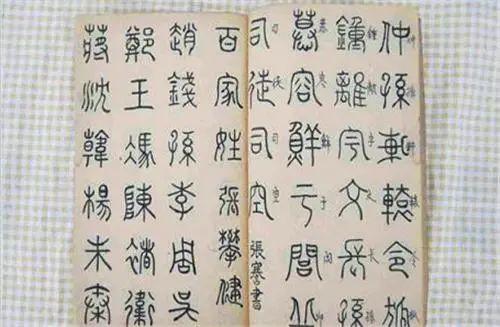 仲孫軒轅令狐
鍾離宇文長孫
慕容鮮于閭丘
司徒司空
百家姓
趙錢孫李周吳
鄭王馮陳褚衛
蔣沈韓楊朱秦